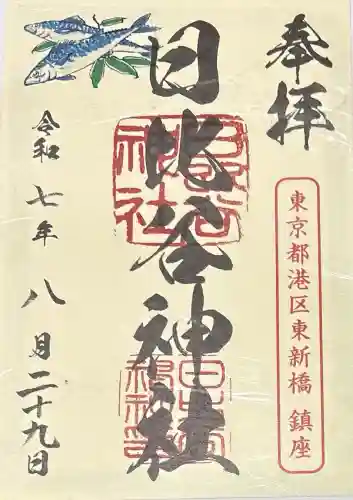 奉拝
東京都港区東新橋 鎮座
日比谷神社
令和 七年 八月二十九日
日比谷神社